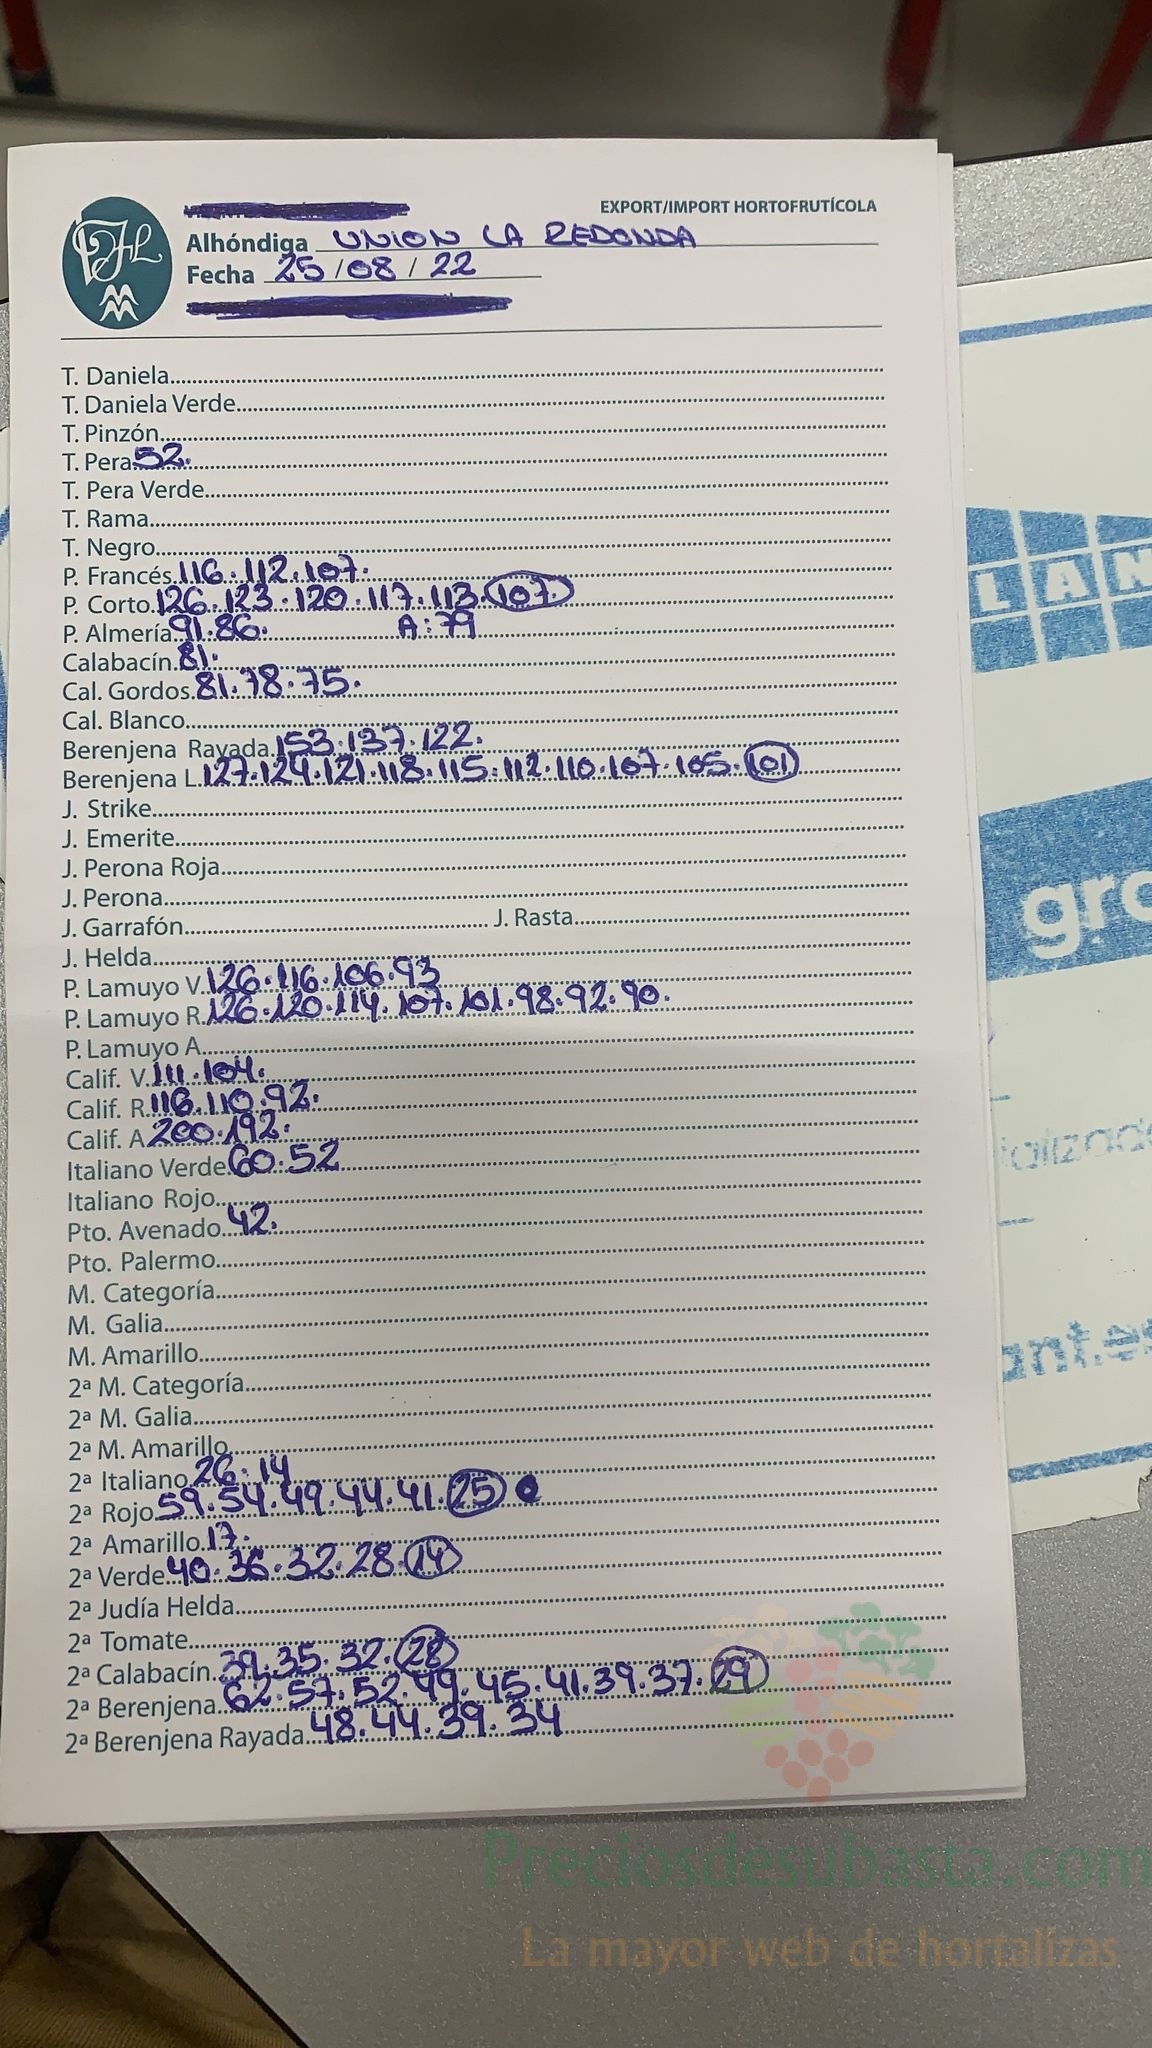 EXPORT/IMPORT HORTOFRUTÍCOLA
Alhóndiga UNION LA REDONDA
Fecha 25/08/22
T. Daniela
T. Daniela Verde
T. Pinzón
T. Pera 52.
T. Pera Verde
T. Rama
T. Negro
P. Francés 116.112.107.
P. Corto 126.123.120.117.113.107.
P. Almería 91.86. A:79
Calabacín 81.
Cal. Gordos 81.78.75.
Cal. Blanco
Berenjena Rayada 153.137.122.
Berenjena L. 127.124.121.118.115.112.110.107.105.101
J. Strike
J. Emerite
J. Perona Roja
J. Perona
J. Garrafón J. Rasta
J. Helda
P. Lamuyo V. 126.116.106.93
P. Lamuyo R. 126.120.114.107.101.98.92.90.
P. Lamuyo A.
Calif. V. 111.104.
Calif. R. 116.110.92.
Calif. A 200.192.
Italiano Verde 60.52
Italiano Rojo
Pto. Avenado 42.
Pto. Palermo
M. Categoría
M. Galia
M. Amarillo
2ª M. Categoría
2ª M. Galia
2ª M. Amarillo
2ª Italiano 26.14
2ª Rojo 59.54.49.44.41.25
2ª Amarillo 17.
2ª Verde 40.36.32.28.14
2ª Judía Helda
2ª Tomate
2ª Calabacín 39.35.32.28
2ª Berenjena 62.57.52.49.45.41.39.37.29
2ª Berenjena Rayada 48.44.39.34
LAN
gro
ant.es
Preciosdesubasta.com
La mayor web de hortalizas